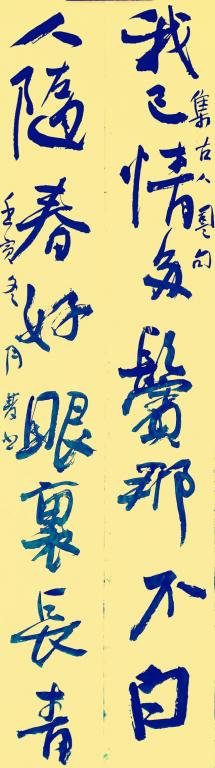 我已情多鬢那不白
集古人句
人隨春好眼裏長青
壬寅冬月